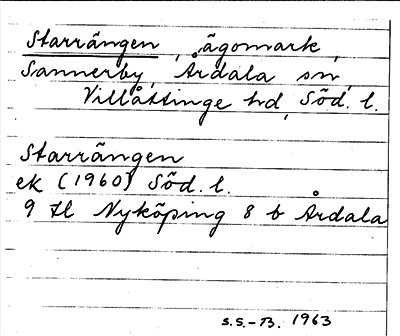 Starrängen, ägomark,
Sannerby, Årdala sn,
Villåttinge hd, Söd. l.
Starrängen
ek (1960) Söd. l.
9 H Nyköping 8 b Årdala
S.S.-B. 1963